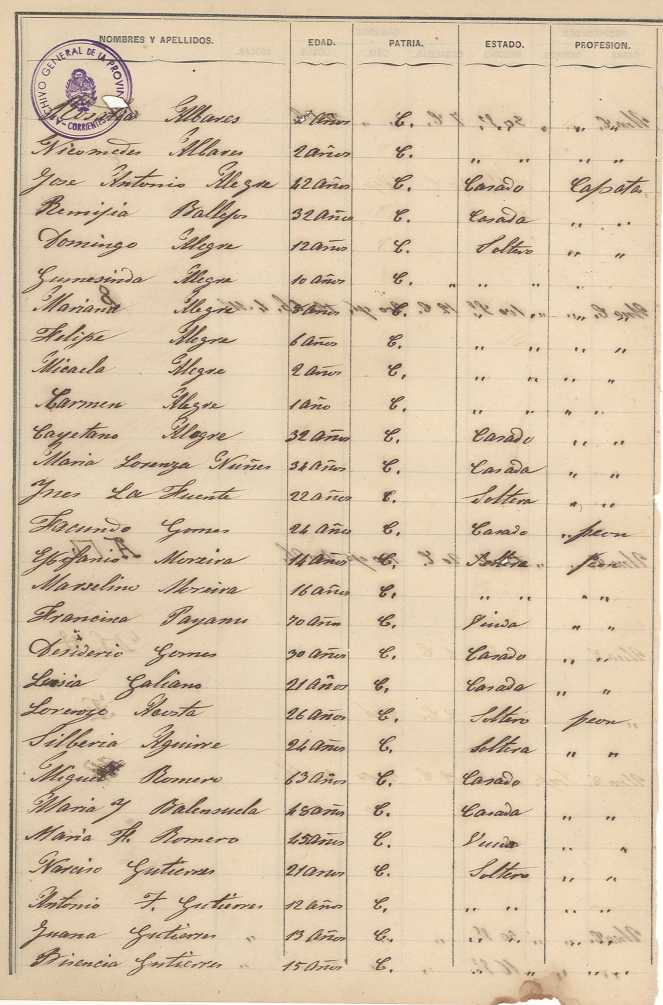 NOMBRES Y APELLIDOS. EDAD. PATRIA. ESTADO. PROFESION.
ARCHIVO GENERAL DE LA PROVIN CORRIENTES
Albares años C. " " " "
Nicomedes Albares 2 años C. " " " "
Jose Antonio Alegre 42 años C. Casado Capatas
Remijia Ballejos 32 años C. Casada " "
Domingo Alegre 12 años C. Soltero " "
Gumesinda Alegre 10 años C. " " " "
Mariano Alegre años C.
Felipe Alegre 6 años C. " " " "
Micaela Alegre 2 años C. " " " "
Carmen Alegre 1 año C. " " " "
Cayetano Alegre 32 años C. Casado " "
Maria Lorenza Nuñes 34 años C. Casada " "
Ynes La Fuente 22 años C. Soltera " "
Facundo Gomes 24 años C. Casado " peon
Epifanio Moreira 14 años C. Soltero peon
Marselino Moreira 16 años C. " " " "
Francisca 70 años C. Viuda " "
Desiderio Gomes 30 años C. Casado " "
Galiano 21 años C. Casada " "
Lorenzo Acosta 26 años C. Soltero peon
Silberia Aguirre 24 años C. Soltera " "
Miguel Romero 63 años C. Casado " "
Maria Y Balensuela 48 años C. Casada " "
Maria Romero 45 años C. Viuda " "
Narciso Gutierres 21 años C. Soltero " "
Antonio F. Gutierres 12 años C. " " " "
Juana Gutierres " 13 años C. " " " "
Bisencia Gutierres " 15 años C. " " " "